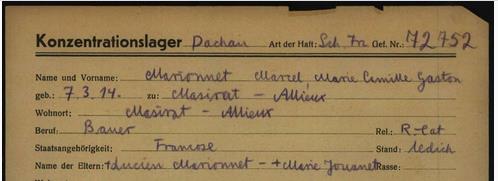 Konzentrationslager Dachau Art der Haft: Sch. Fr. Gef. Nr.: 72752
Name und Vorname: Marionnet Marcel Marie Camille Gaston
geb.: 7.3.14. zu: Masirat - Allieux
Wohnort: Masirat - Allieux
Beruf: Bauer Rel.: R-Cat
Staatsangehörigkeit: Francose Stand: ledich
Name der Eltern: +Lucien Marionnet - +Marie Jouanet Rasse: